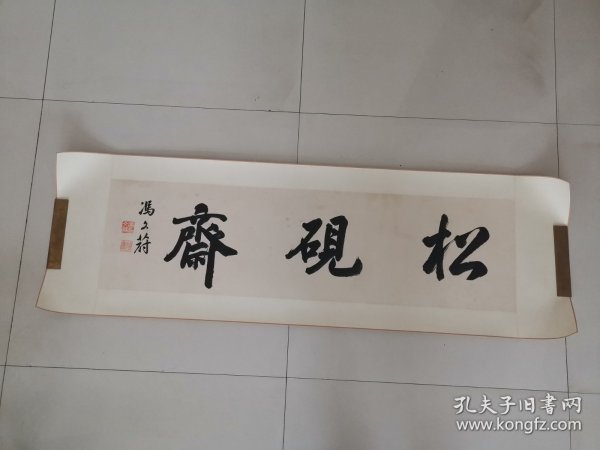 松硯齋
馮文蔚
孔夫子旧書网
www.kongfz.com